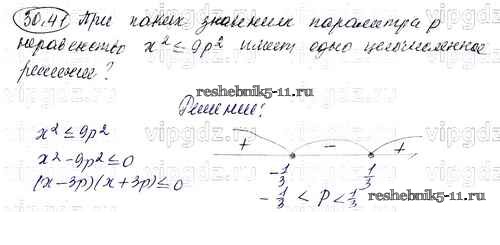 30.41 При каких значениях параметра p
неравенство x² ≤ 9p² имеет одно целочисленное
решение?
reshebnik5-11.ru
Решение:
x² ≤ 9p²
x² - 9p² ≤ 0
(x - 3p)(x + 3p) ≤ 0
+ - +
-1/3 1/3
-1/3 < p < 1/3
reshebnik5-11.ru
vipgdz.ru